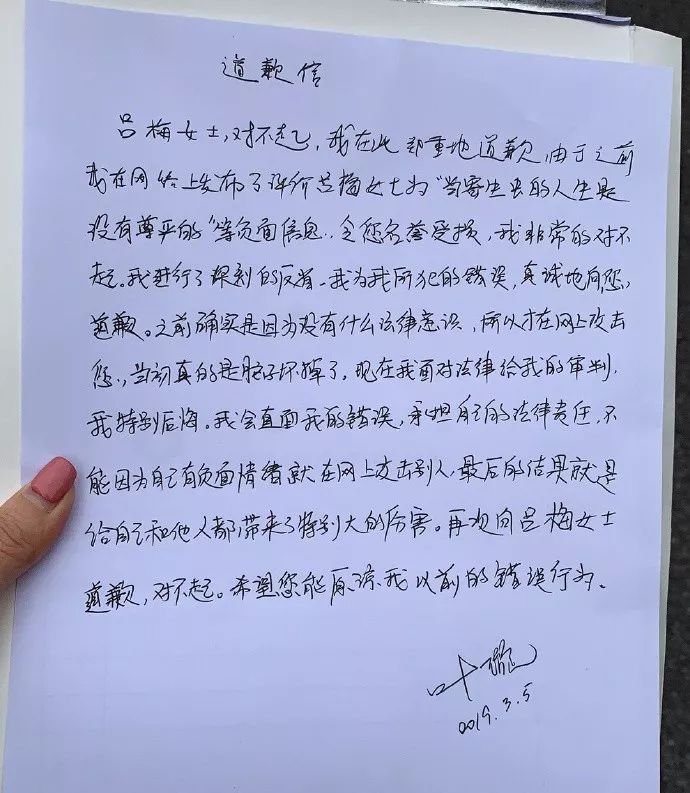 道歉信
吕梅女士，对不起，我在此郑重地道歉，由于之前
我在网络上发布了评价吕梅女士为“当寄生虫的人生是
没有尊严的”等负面信息，令您名誉受损，我非常的对不
起。我进行了深刻的反省，我为我所犯的错误，真诚地向您，
道歉。之前确实是因为没有什么法律意识，所以才在网上攻击
您，当初真的是脑子坏掉了，现在我面对法律给我的审判，
我特别后悔。我会直面我的错误，承担自己的法律责任，不
能因为自己有负面情绪就在网上攻击别人，最后的结果就是
给自己和他人都带来了特别大的厉害。再次向吕梅女士
道歉，对不起。希望您能原谅我以前的错误行为。
叶璇
2019.3.5